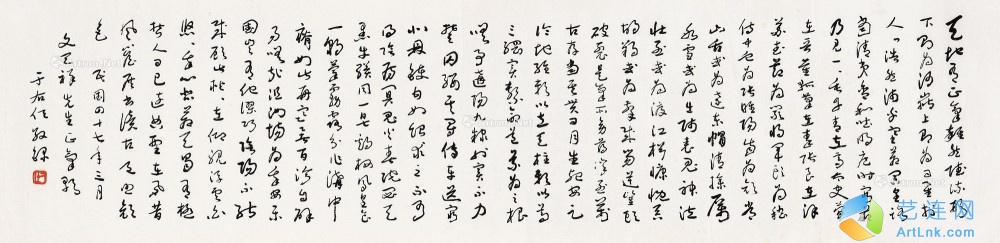 天地有正氣雜然賦流形
下則為河嶽上則為日星於
人曰浩然沛乎塞蒼冥皇路當
清夷含和吐明庭時窮節
乃見一一垂丹青在齊太史簡
在晉董狐筆在秦張良椎在漢
蘇武節為嚴將軍頭為嵇
侍中血為張睢陽齒為顏常
山舌或為遼東帽清操厲
冰雪或為出師表鬼神泣
壯烈或為渡江楫慷慨吞
胡羯或為擊賊笏逆豎頭
破裂是氣所磅礴凜烈萬
古存當其貫日月生死安足
論地維賴以立天柱賴以尊
三綱實繫命道義為之根
嗟予遘陽九隸也實不力
楚囚纓其冠傳車送窮
北鼎鑊甘如飴求之不可
得陰房闃鬼火春院閟天
黑牛驥同一皂雞棲鳳凰食
一朝蒙霧露分作溝中
瘠如此再寒暑百沴自辟
易嗟哉沮洳場為我安樂
國豈有他繆巧陰陽不能
賊顧此耿耿在仰視浮雲白
悠悠我心悲蒼天曷有極
哲人日已遠典刑在夙昔
風簷展書讀古道照顏
色 民國四十七年三月
文天祥先生正氣歌
于右任敬錄
艺连网
ArtLnk.com